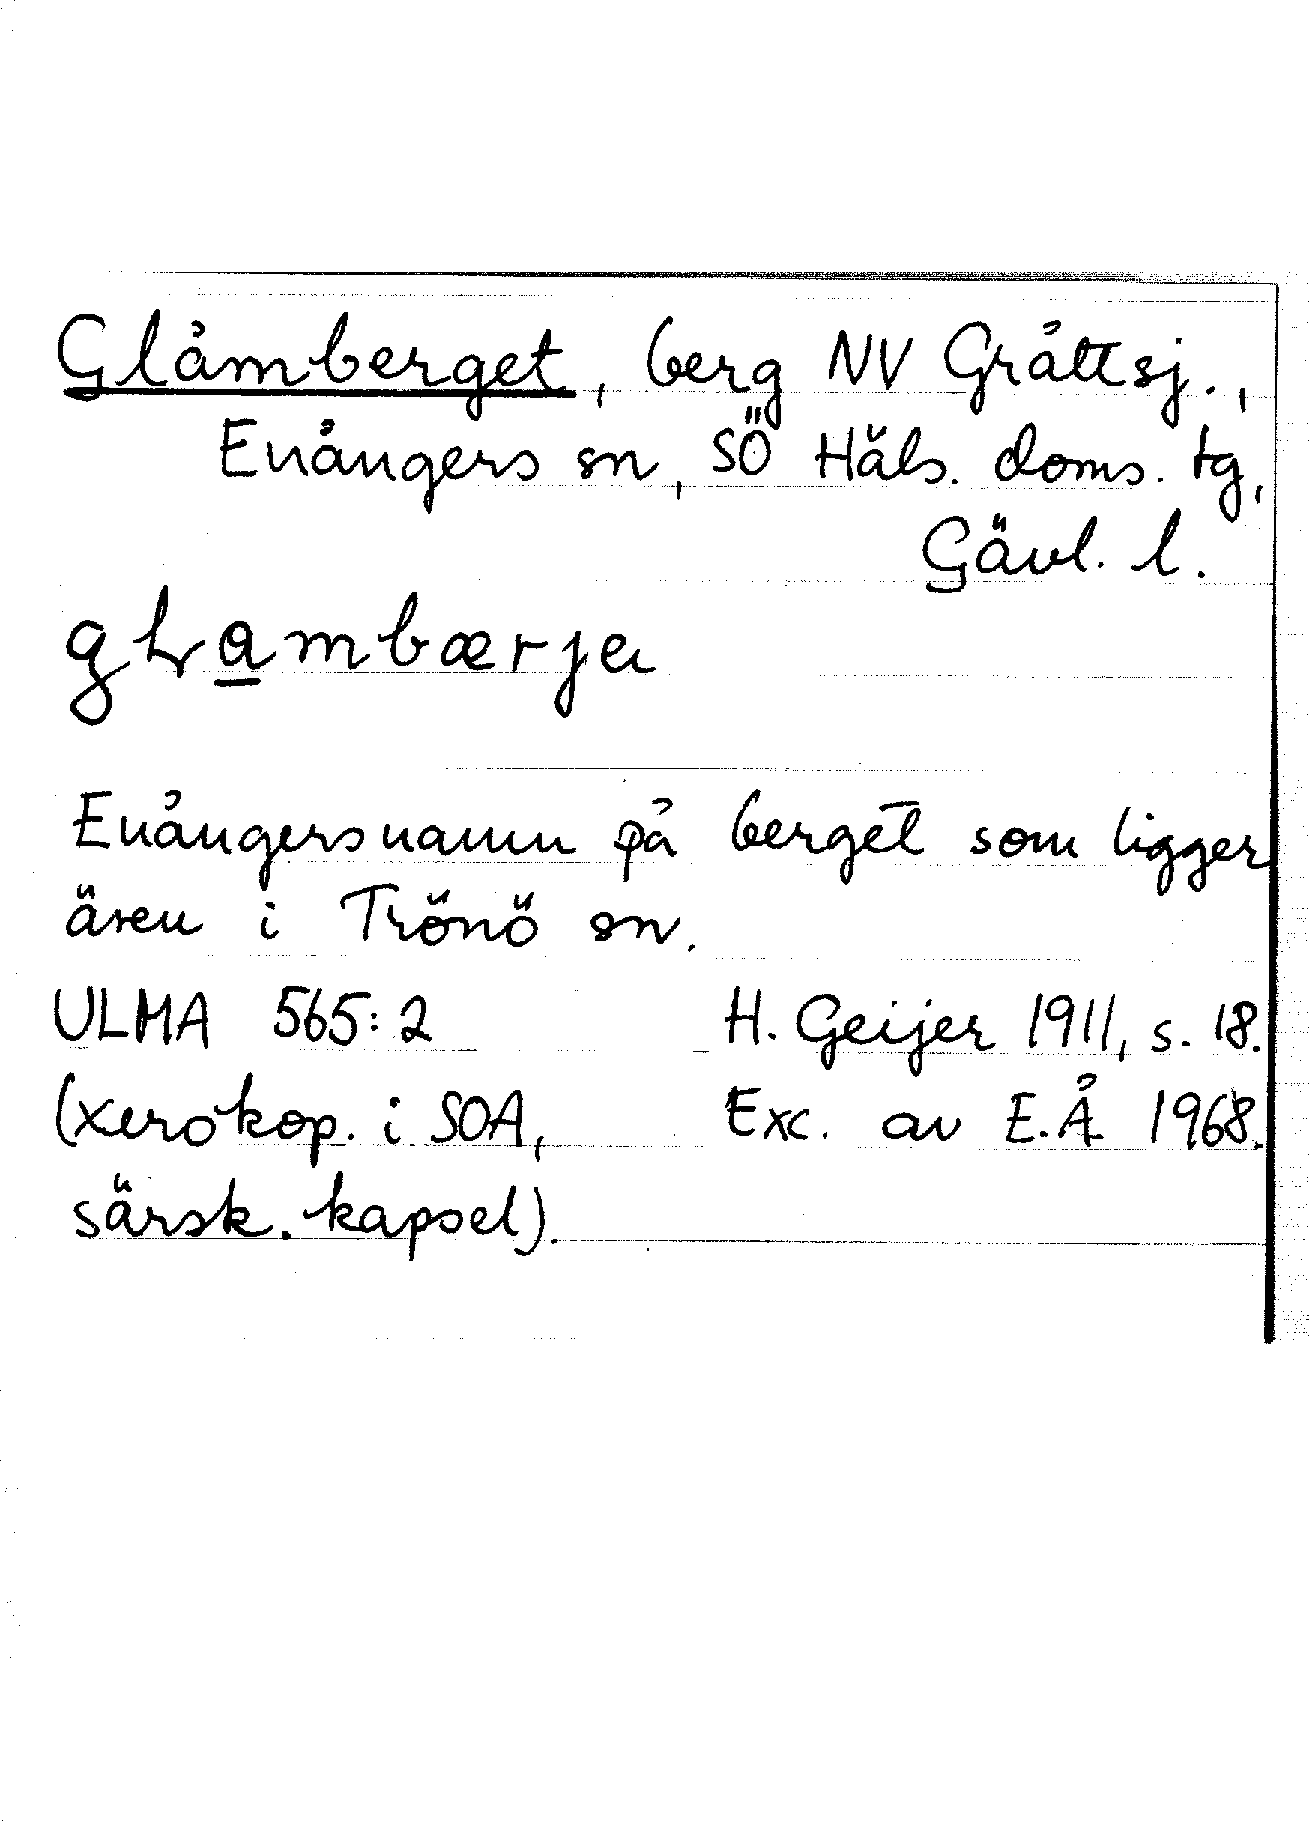 Glåmberget, berg NV Gråttsj.,
Enångers sn, SÖ Häls. doms. tg,
Gävl. l.
Enångersnamn på berget som ligger
även i Trönö sn.
ULMA 565:2 H. Geijer 1911, s. 18.
(xerokop. i SOA, Exc. av E.Å 1968.
särsk. kapsel).